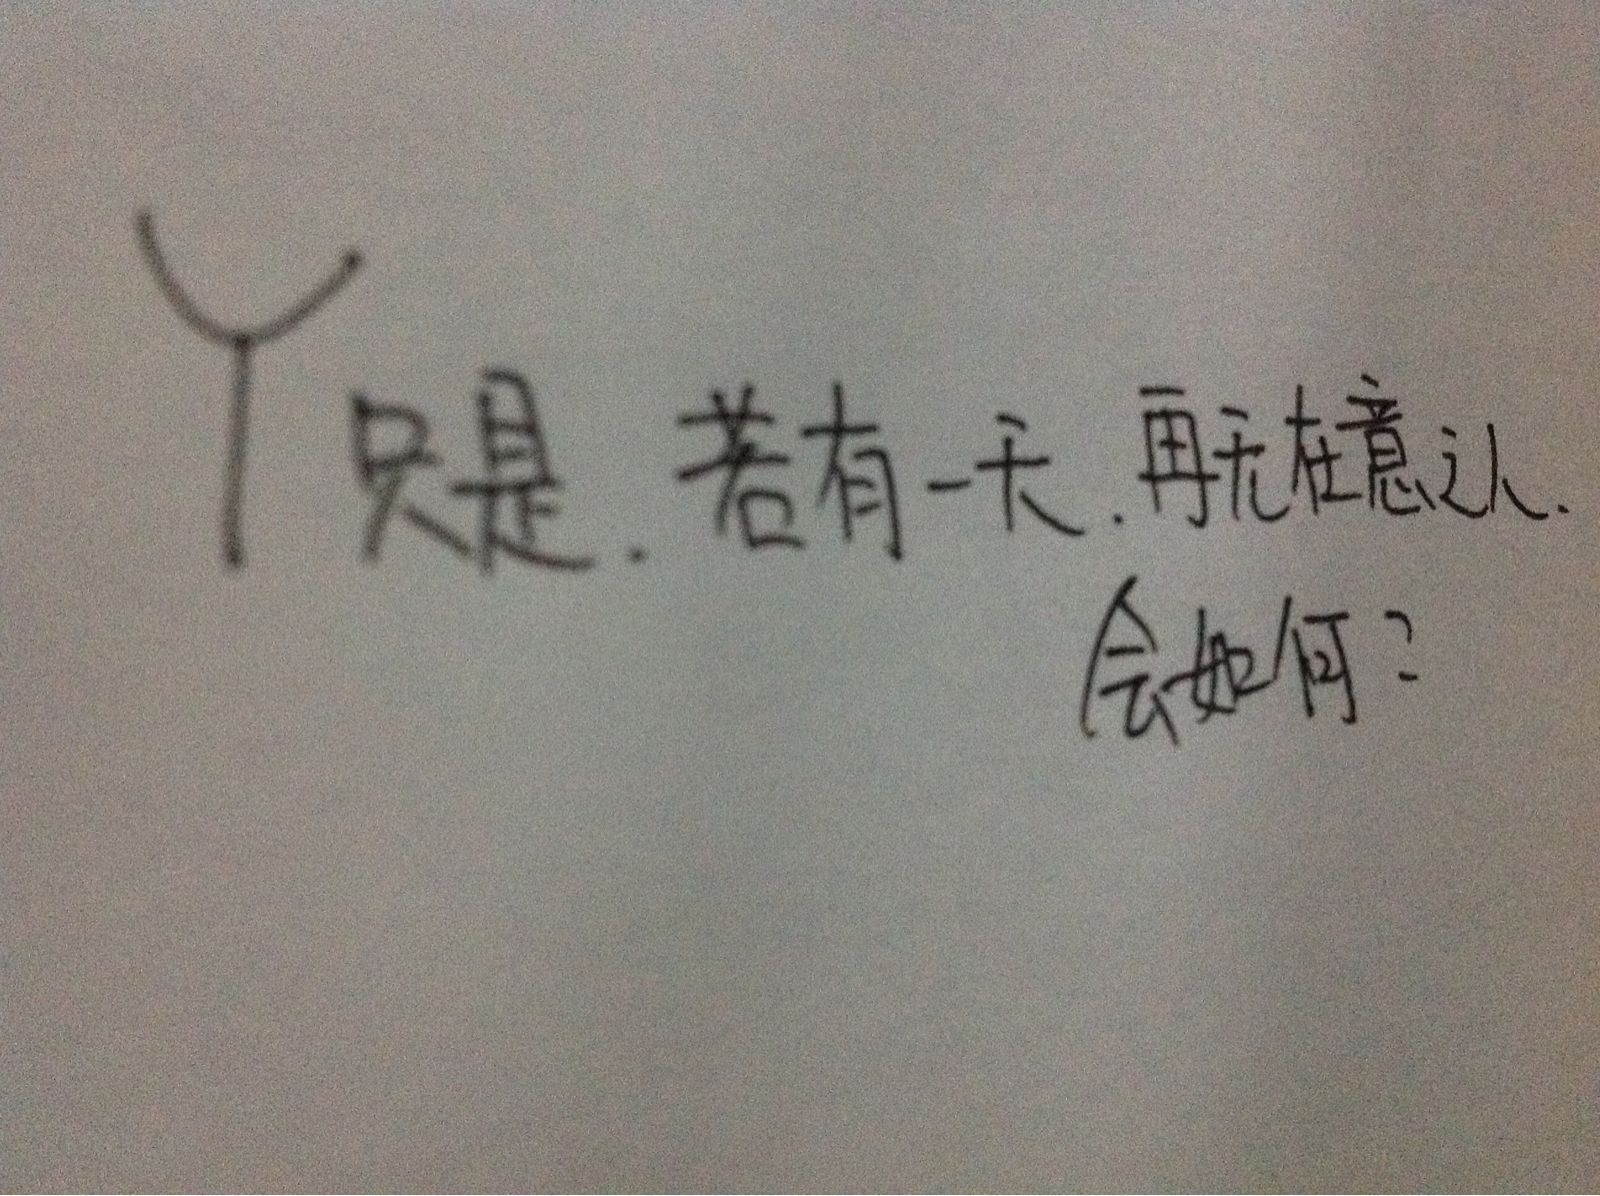 Y只是.若有一天.再无在意之人.
会如何?